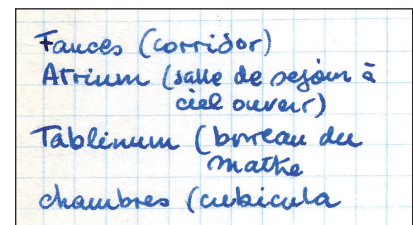 Fauces (corridor)
Atrium (salle de séjour à
ciel ouvert)
Tablinum (bureau du
maître
chambres (cubicula